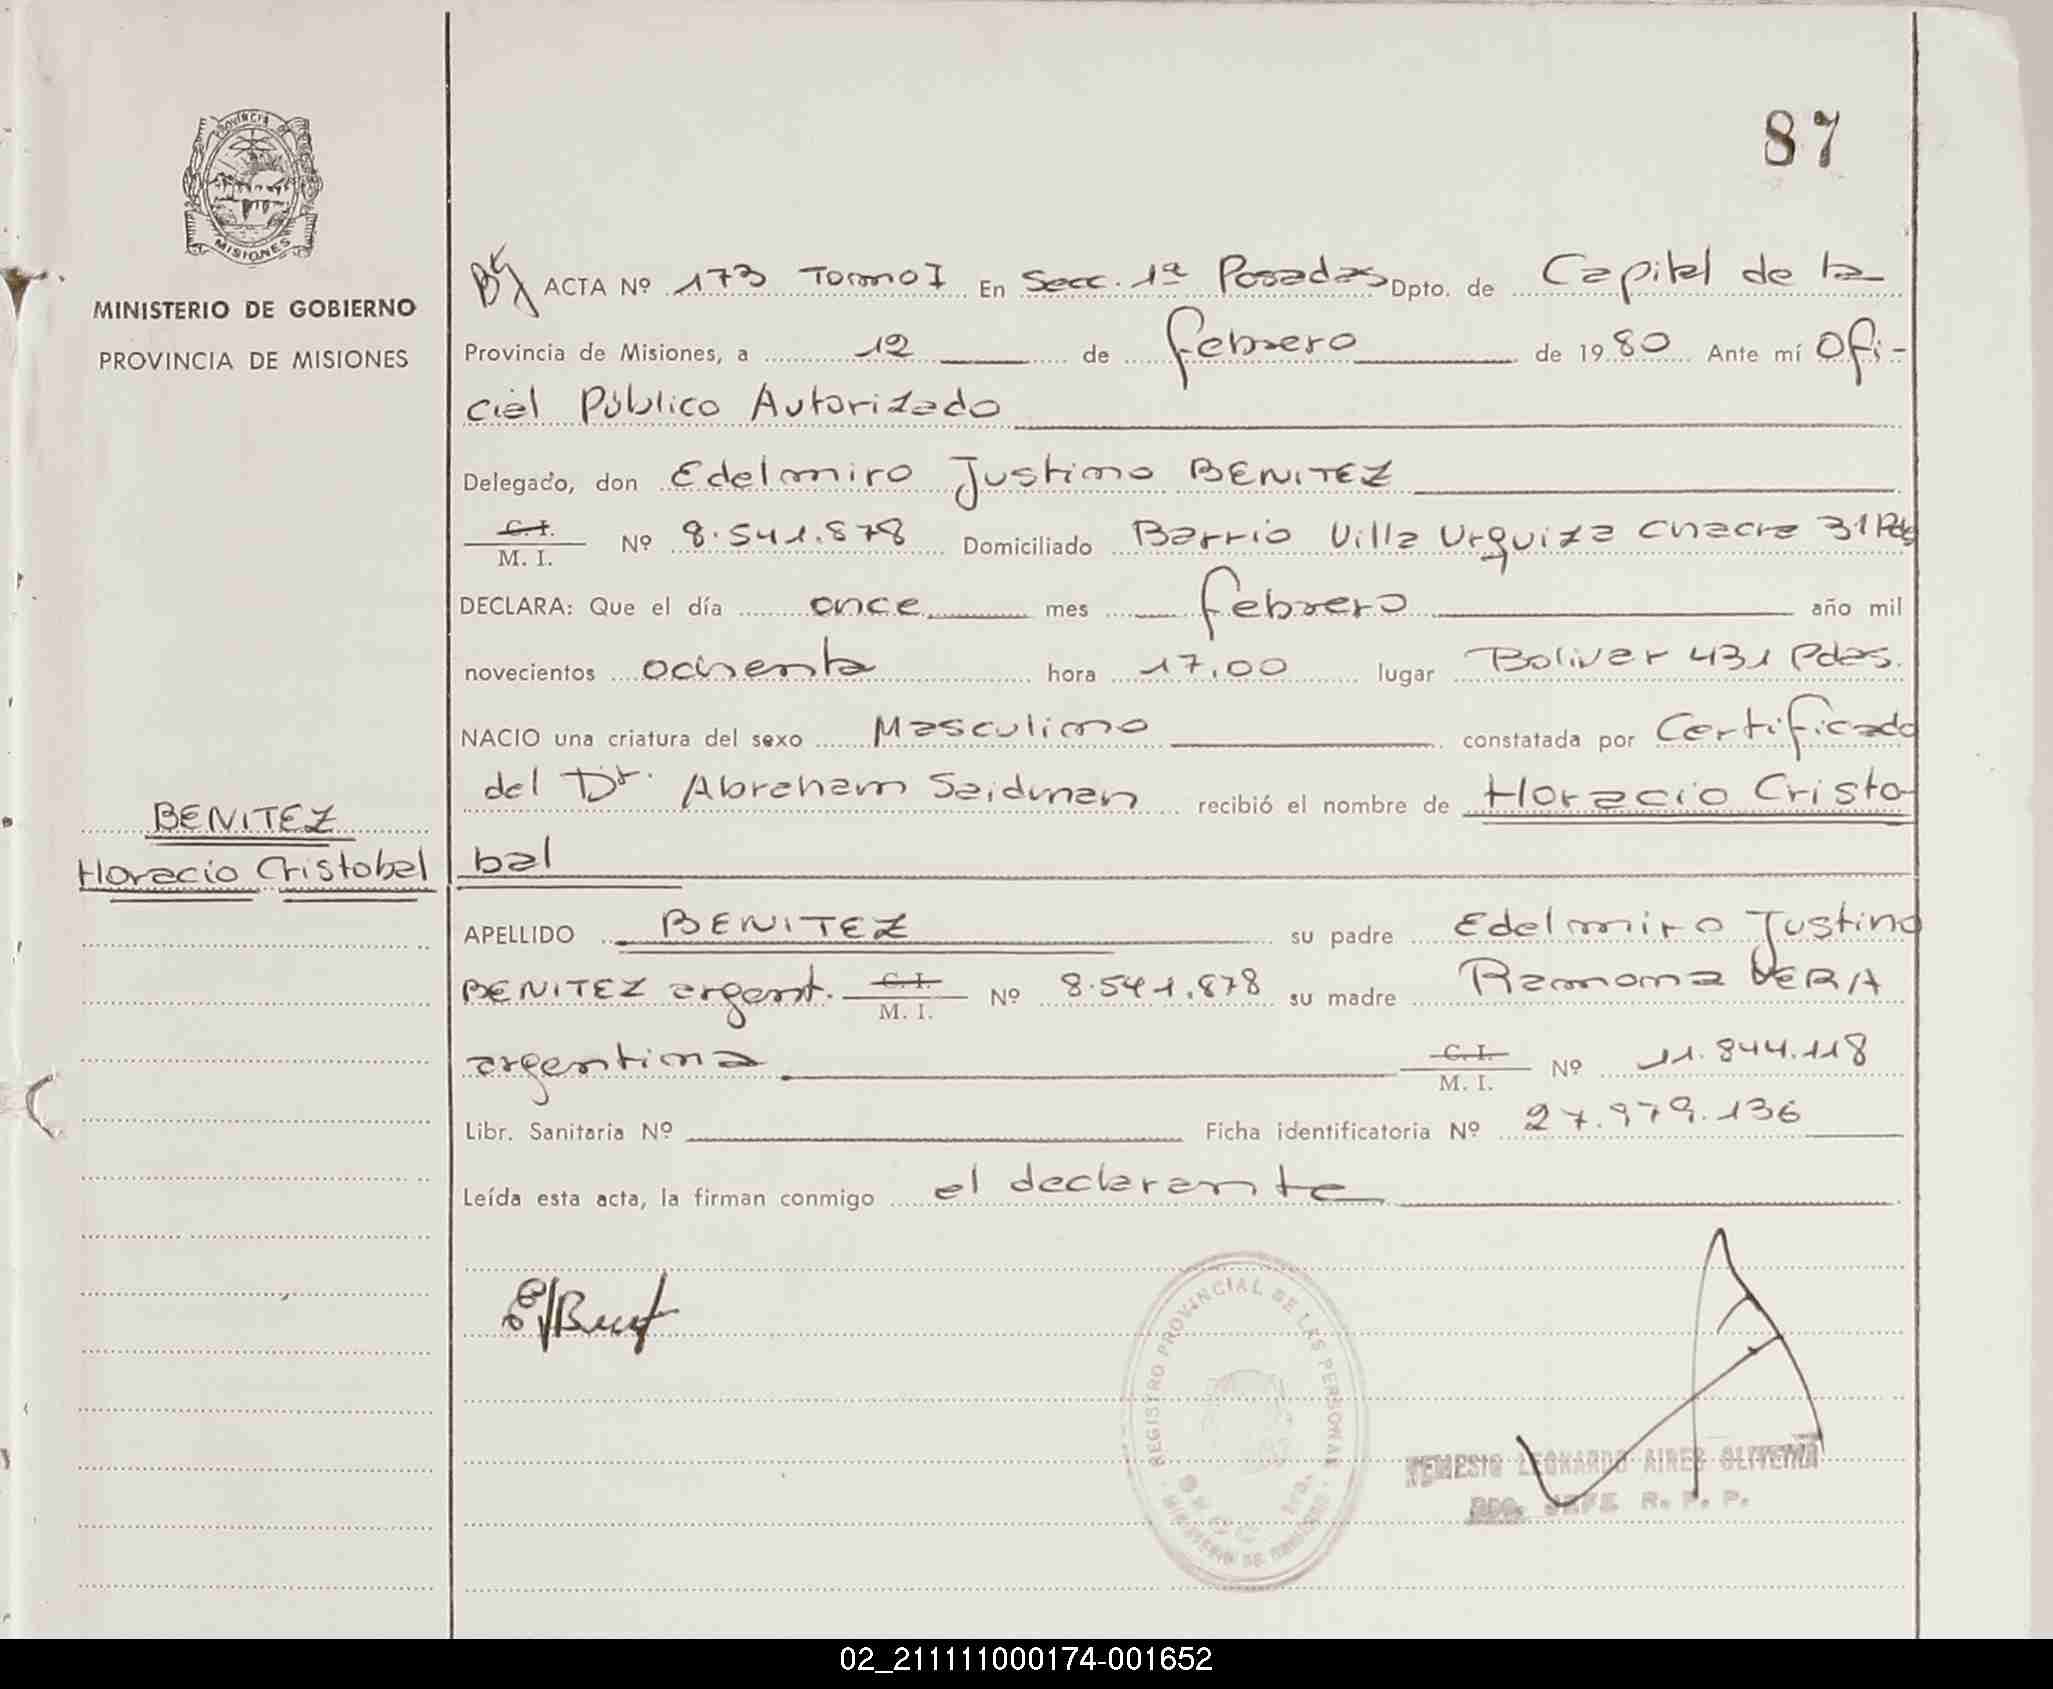 87
PROVINCIA DE
MISIONES
MINISTERIO DE GOBIERNO
PROVINCIA DE MISIONES
ACTA Nº 173 Tomo I En Secc. 1ª Posadas Dpto. de Capital de la
Provincia de Misiones, a 12 de febrero de 1980 Ante mí Ofi-
cial Público Autorizado
Delegado, don Edelmiro Justino BENITEZ
C. I.
M. I. Nº 8.541.878 Domiciliado Barrio Villa Urquiza Chacra 31 Pdas
DECLARA: Que el día once mes febrero año mil
novecientos ochenta hora 17,00 lugar Bolivar 431 Pdas.
NACIO una criatura del sexo Masculino constatada por Certificado
del Dr. Abraham Saidman recibió el nombre de Horacio Cristo-
bal
BENITEZ
Horacio Cristobal
APELLIDO BENITEZ su padre Edelmiro Justino
BENITEZ argent. C. I. M. I. Nº 8.541.878 su madre Ramona VERA
argentina C. I. M. I. Nº 11.844.118
Libr. Sanitaria Nº Ficha identificatoria Nº 27.979.136
Leída esta acta, la firman conmigo el declarante
REGISTRO PROVINCIAL DE LAS PERSONAS
MINISTERIO DE GOBIERNO
LEONARDO AIRES OLIVEIRA
JEFE R. P. P.
02_211111000174-001652